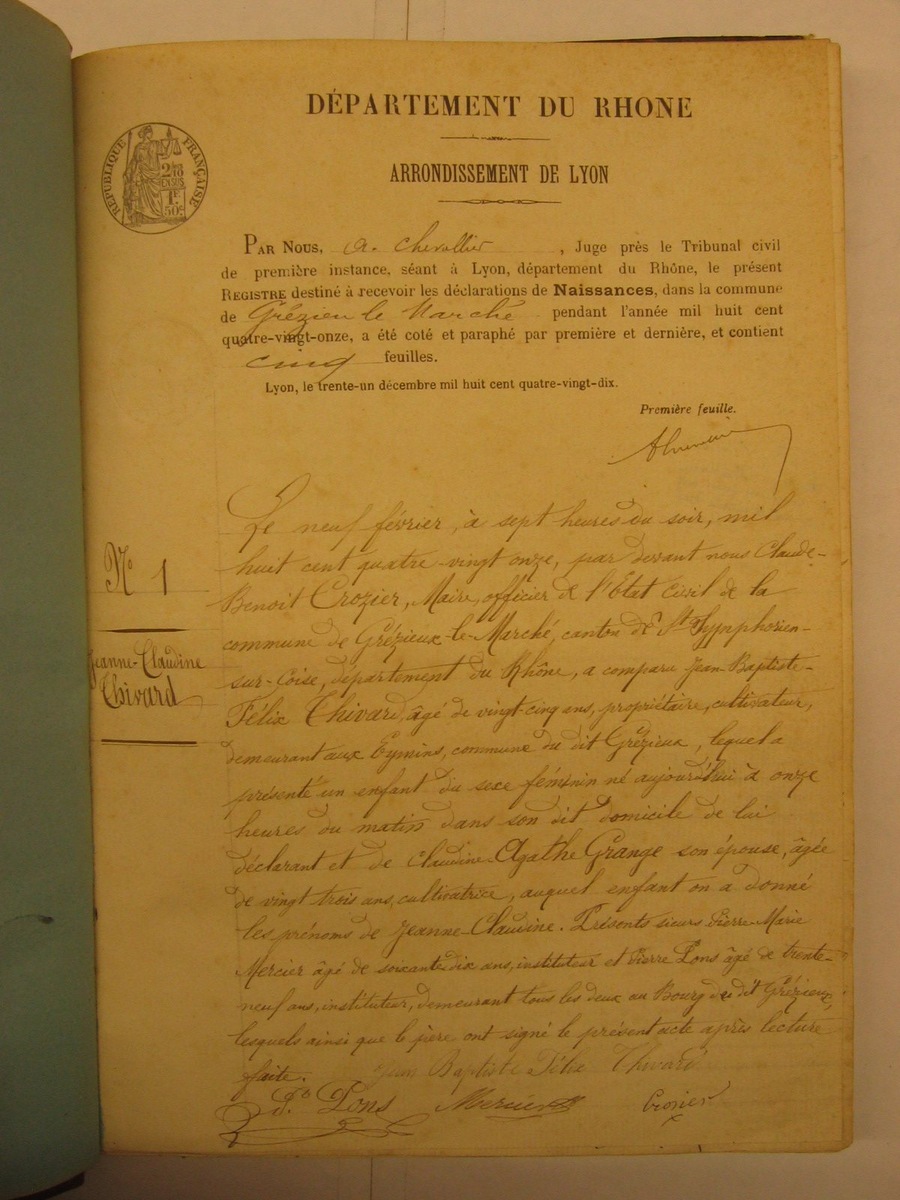 DÉPARTEMENT DU RHONE
ARRONDISSEMENT DE LYON
RÉPUBLIQUE FRANÇAISE
2/10
EN SUS
1F
50c
PAR NOUS, A. Chevallier, Juge près le Tribunal civil
de première instance, séant à Lyon, département du Rhône, le présent
REGISTRE destiné à recevoir les déclarations de Naissances, dans la commune
de Grézieu le Marché pendant l'année mil huit cent
quatre-vingt-onze, a été coté et paraphé par première et dernière, et contient
cinq feuilles.
Lyon, le trente-un décembre mil huit cent quatre-vingt-dix.
Première feuille.
N° 1
Jeanne-Claudine
Thivard
Le neuf février, à sept heures du soir, mil
huit cent quatre-vingt onze, par devant nous Claude-
Benoit Crozier, Maire, officier de l'Etat Civil de la
commune de Grézieux-le-Marché, canton de St Symphorien-
sur-Coise, département du Rhône, a comparu Jean-Baptiste-
Félix Thivard, âgé de vingt-cinq ans, propriétaire, cultivateur,
demeurant aux Eymins, commune du dit Grézieux, lequel a
présenté un enfant du sexe féminin né aujourd'hui à onze
heures du matin dans son dit domicile de lui
déclarant et de Claudine-Agathe Grange son épouse, âgée
de vingt trois ans, cultivatrice, auquel enfant on a donné
les prénoms de Jeanne-Claudine. Présents sieurs Pierre-Marie
Mercier âgé de soixante-dix ans, instituteur et Pierre Pons âgé de trente-
neuf ans, instituteur, demeurant tous les deux au Bourg du dit Grézieux,
lesquels ainsi que le père ont signé le présent acte après lecture
faite. Jean Baptiste Félix Thivard
Pons Mercier Crozier